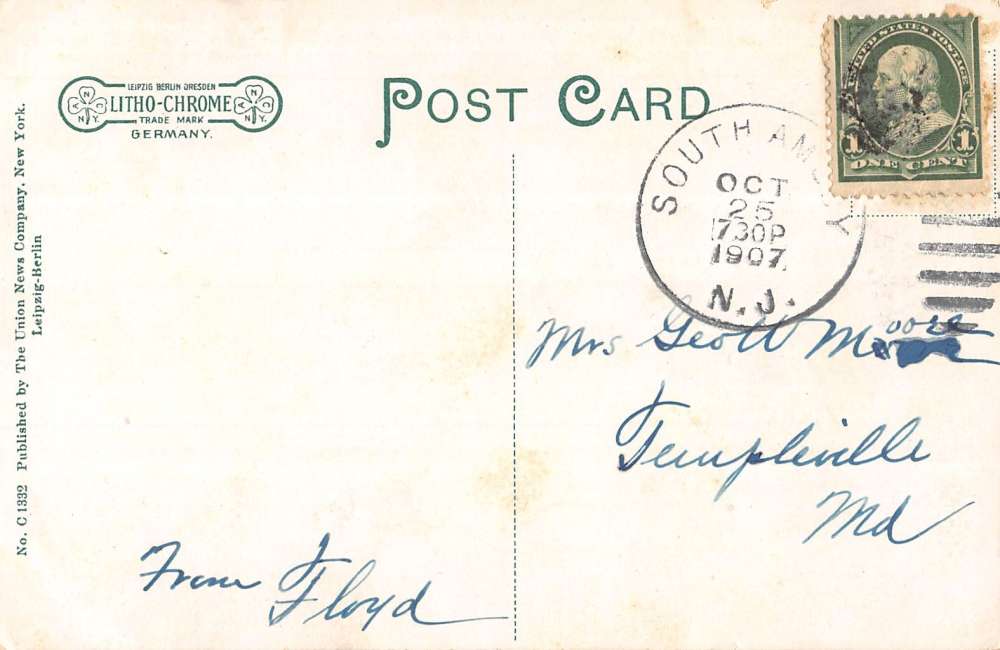 LEIPZIG BERLIN DRESDEN
LITHO-CHROME
TRADE MARK
GERMANY.
N A N Y.
N C N Y.
POST CARD
UNITED STATES POSTAGE
1 1
ONE CENT
SOUTH AMBOY
OCT
25
730P
1907
N.J.
No. C 1332 Published by The Union News Company, New York.
Leipzig-Berlin
Mrs Geo W Moore
Templeville
Md
From Floyd